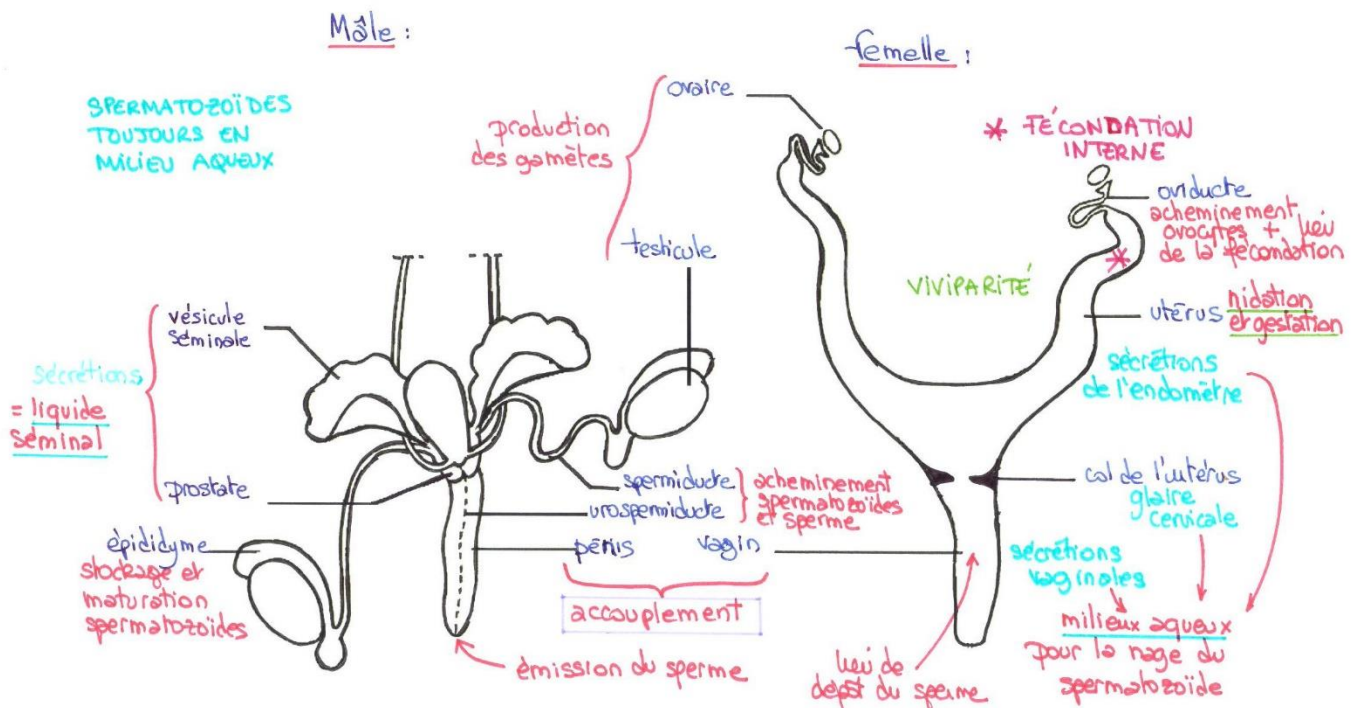 Mâle :
femelle :
SPERMATOZOÏDES
TOUJOURS EN
MILIEU AQUEUX
production
des gamètes
ovaire
testicule
* FÉCONDATION
INTERNE
oviducte
acheminement
ovocytes + lieu
de la fécondation
*
VIVIPARITÉ
utérus
nidation
et gestation
sécrétions
de l'endomètre
vésicule
séminale
sécrétions
= liquide
séminal
prostate
spermiducte
urospermiducte
acheminement
spermatozoïdes
et sperme
col de l'utérus
glaire
cervicale
épididyme
stockage et
maturation
spermatozoïdes
pénis
vagin
accouplement
émission du sperme
lieu de
dépôt du sperme
sécrétions
vaginales
milieux aqueux
pour la nage du
spermatozoïde